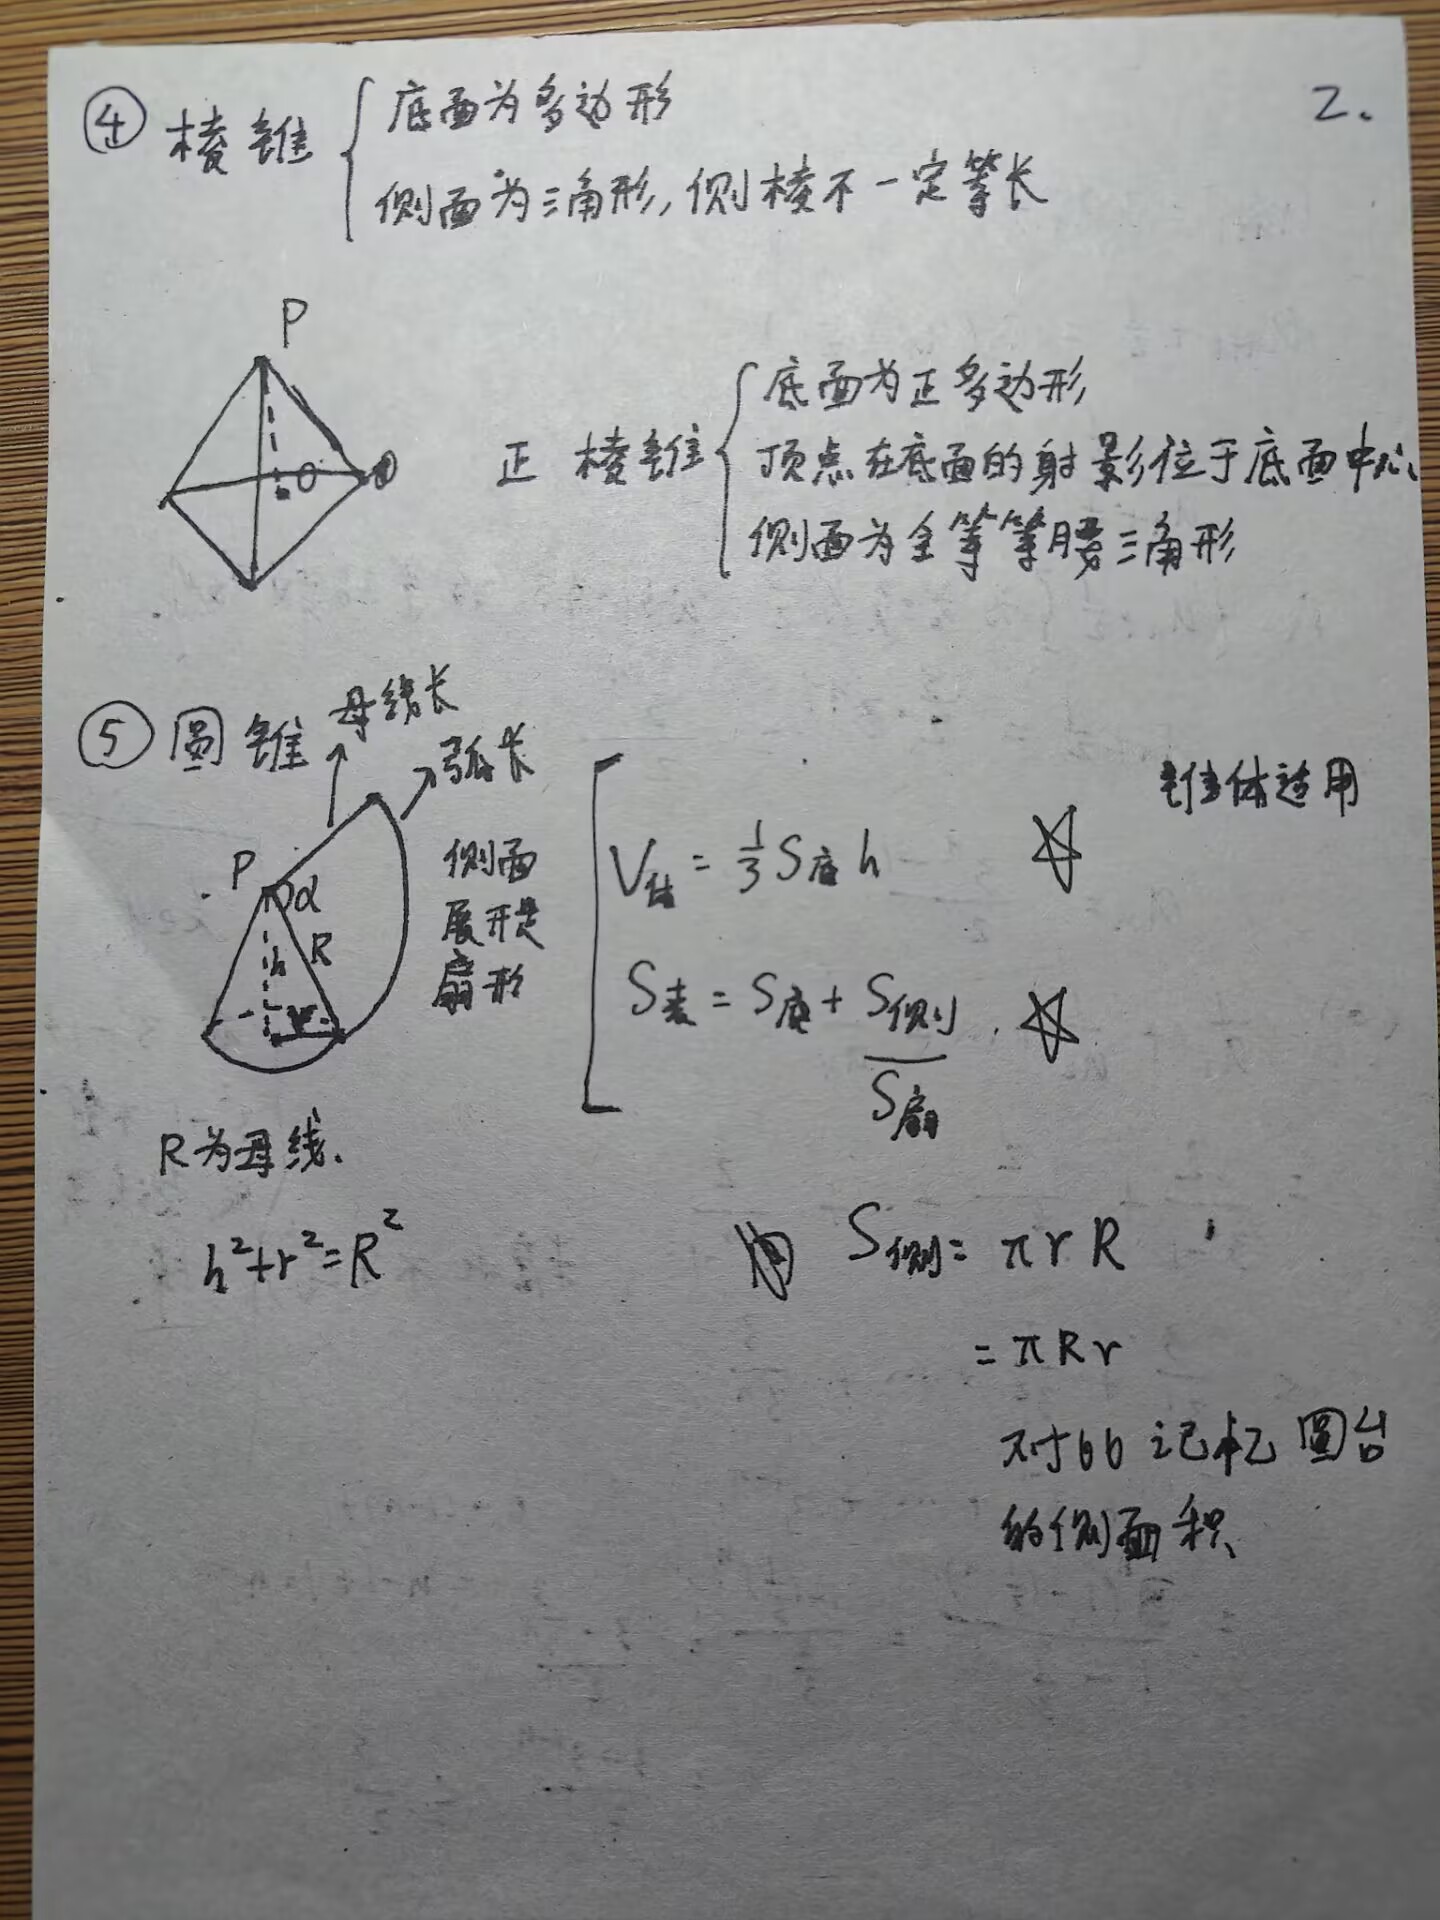 2.
④ 棱锥 { 底面为多边形
侧面为三角形,侧棱不一定等长
P
O
正棱锥 { 底面为正多边形
顶点在底面的射影位于底面中心
侧面为全等等腰三角形
⑤ 圆锥
母线长
弧长
P
α
R
h
r
侧面
展开是
扇形
锥体适用
V体 = 1/3 S底 h ☆
S表 = S底 + S侧 ☆
S扇
R为母线.
h²+r²=R²
S侧 = πrR
= πRr
对比记忆圆台
的侧面积